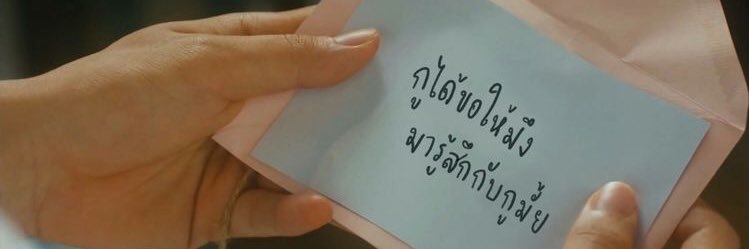 กูได้ขอให้มึง
มารู้สึกกับกูมั้ย